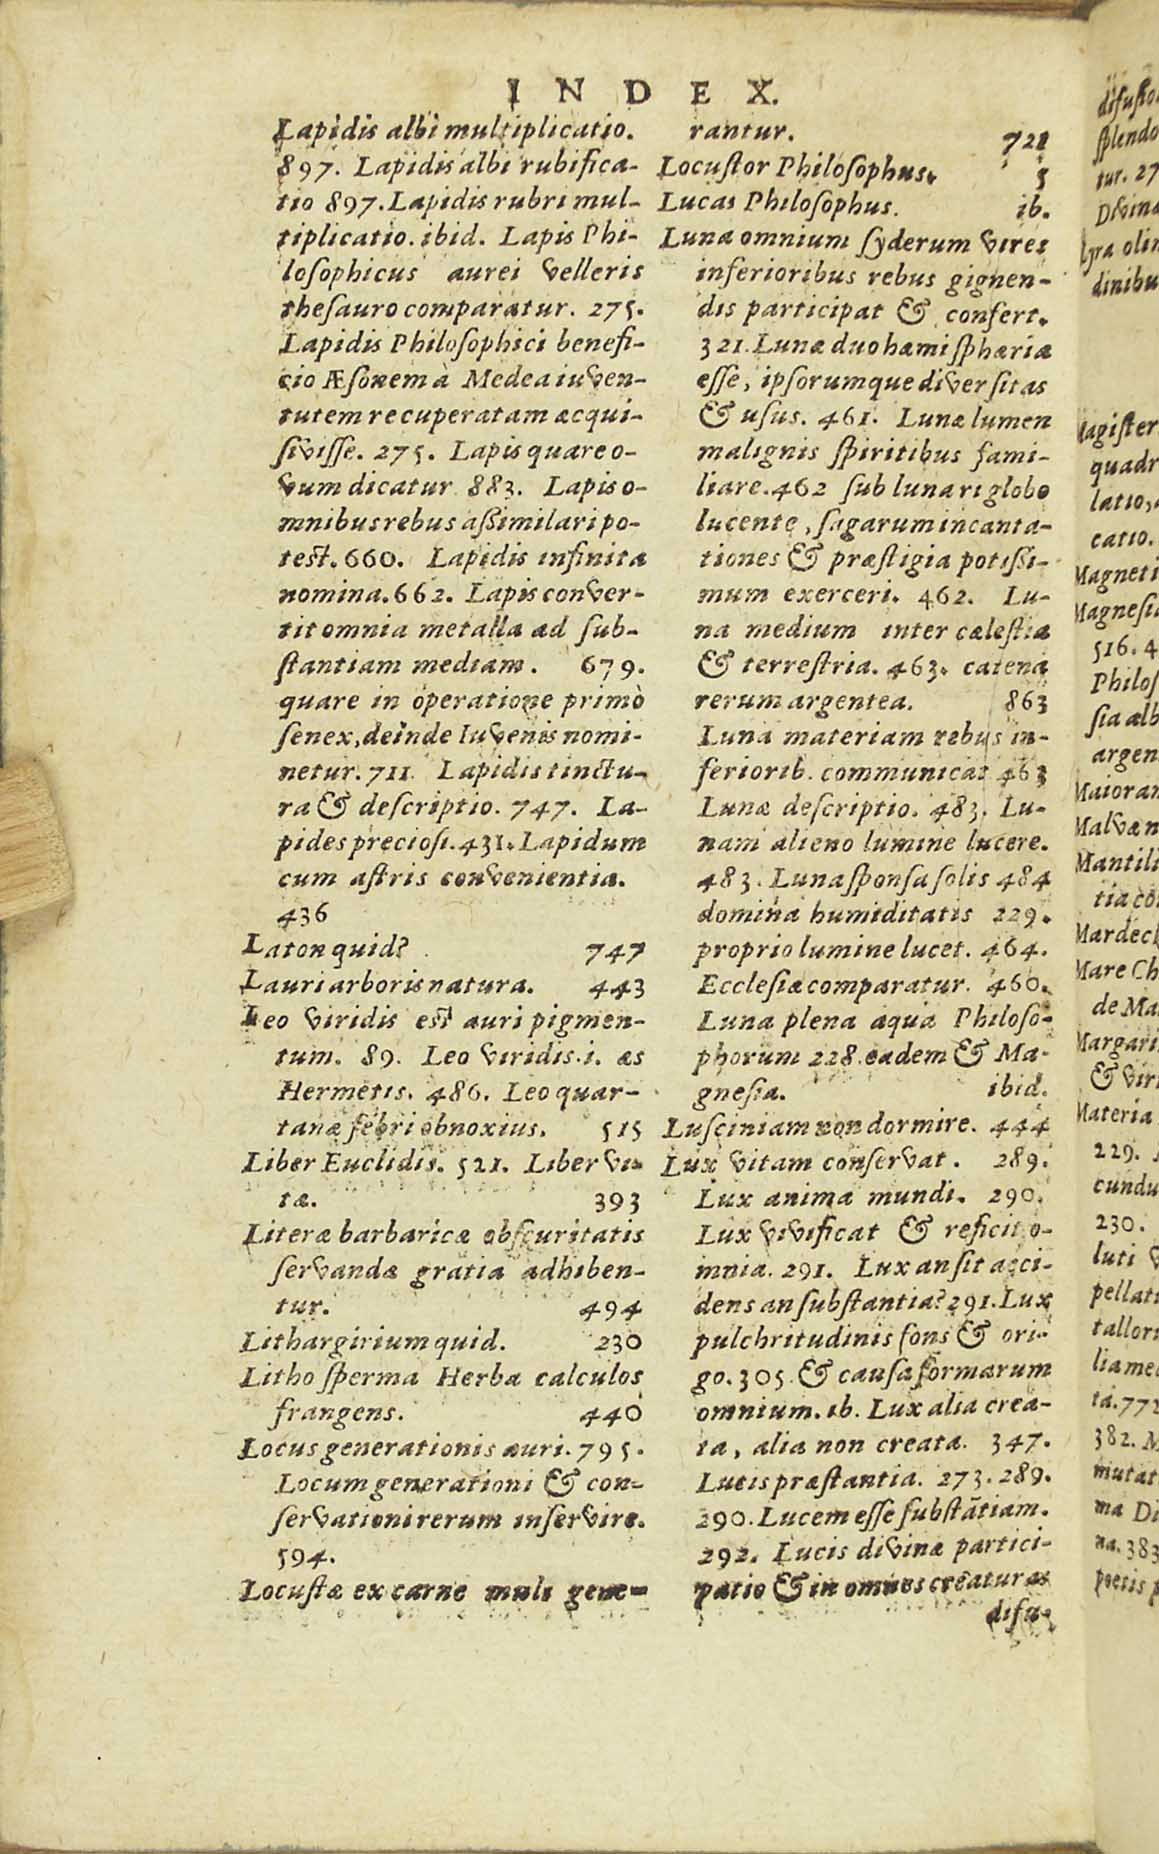 INDEX.
Lapidis albi multiplicatio.
897. Lapidis albi rubifica-
tio 897. Lapidis rubri mul-
tiplicatio. ibid. Lapis Phi-
losophicus aurei velleris
thesauro comparatur. 275.
Lapidis Philosophici benefi-
cio Æsonem à Medea iuven-
tutem recuperatam acqui-
sivisse. 275. Lapis quare o-
vum dicatur 883. Lapis o-
mnibus rebus assimilari po-
test. 660. Lapidis infinita
nomina. 662. Lapis conver-
tit omnia metalla ad sub-
stantiam mediam. 679.
quare in operatione primò
senex, deinde Iuvenis nomi-
netur. 711. Lapidis tinctu-
ra & descriptio. 747. La-
pides preciosi. 431. Lapidum
cum astris convenientia.
436
Laton quid? 747
Lauri arboris natura. 443
Leo viridis est auri pigmen-
tum. 89. Leo viridis. i. æs
Hermetis. 486. Leo quar-
tanæ febri obnoxius. 515
Liber Euclidis. 521. Liber vi-
tæ. 393
Literæ barbaricæ obscuritatis
servandæ gratia adhiben-
tur. 494
Lithargirium quid. 230
Lithosperma Herba calculos
frangens. 440
Locus generationis auri. 795.
Locum generationi & con-
servationi rerum inservire.
594.
Locustæ ex carne muli gene-
rantur. 721
Locustor Philosophus. 5
Lucas Philosophus. ib.
Lunæ omnium syderum vires
inferioribus rebus gignen-
dis participat & confert.
321. Lunæ duo hæmisphæria
esse, ipsorumque diversitas
& usus. 461. Lunæ lumen
malignis spiritibus fami-
liare. 462 sub lunari globo
lucente, sagarum incanta-
tiones & præstigia potissi-
mum exerceri. 462. Lu-
na medium inter cælestia
& terrestria. 463. catena
rerum argentea. 863
Luna materiam rebus in-
feriorib. communicat 463
Lunæ descriptio. 483. Lu-
nam alieno lumine lucere.
483. Luna sponsa solis 484
domina humiditatis 229.
proprio lumine lucet. 464.
Ecclesiæ comparatur. 460.
Luna plena aqua Philoso-
phorum 228. eadem & Ma-
gnesia. ibid.
Lusciniam non dormire. 444
Lux vitam conservat. 289.
Lux anima mundi. 290.
Lux vivificat & reficit o-
mnia. 291. Lux an sit acci-
dens an substantia? 291. Lux
pulchritudinis fons & ori-
go. 305. & causa formarum
omnium. ib. Lux alia crea-
ta, alia non creata. 347.
Lucis præstantia. 273. 289.
290. Lucem esse substãtiam.
292. Lucis divinæ partici-
patio & in omnes creaturas
difu-